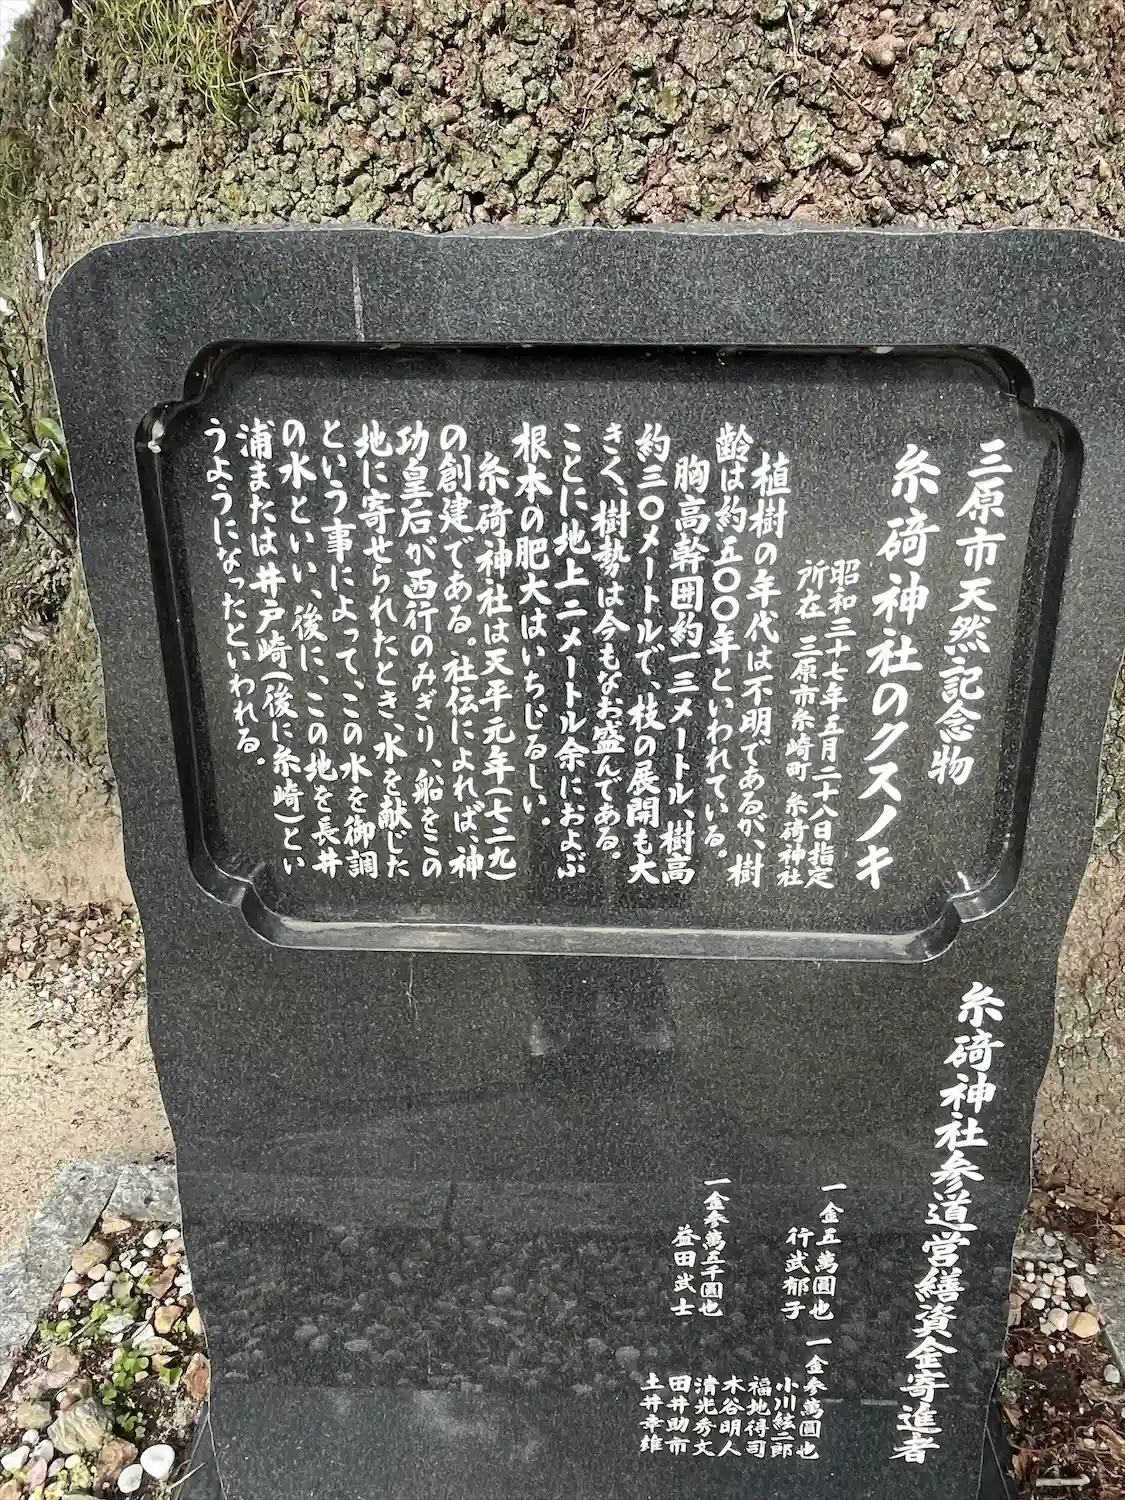 三原市天然記念物
糸碕神社のクスノキ
昭和三十七年五月二十八日指定
所在 三原市糸崎町 糸碕神社
植樹の年代は不明であるが、樹
齢は約五〇〇年といわれている。
胸高幹囲約一三メートル、樹高
約三〇メートルで、枝の展開も大
きく、樹勢は今もなお盛んである。
ことに地上二メートル余におよぶ
根本の肥大はいちじるしい。
糸碕神社は天平元年(七二九)
の創建である。社伝によれば、神
功皇后が西行のみぎり、船をこの
地に寄せられたとき、水を献じた
という事によって、この水を御調
の水といい、後に、この地を長井
浦または井戸崎(後に糸崎)とい
うようになったといわれる。
糸碕神社参道営繕資金寄進者
一金五萬圓也
行武郁子
一金参萬五千圓也
益田武士
一金参萬圓也
小川絃二郎
福地得司
木谷明人
清光秀文
田井助市
土井幸雄